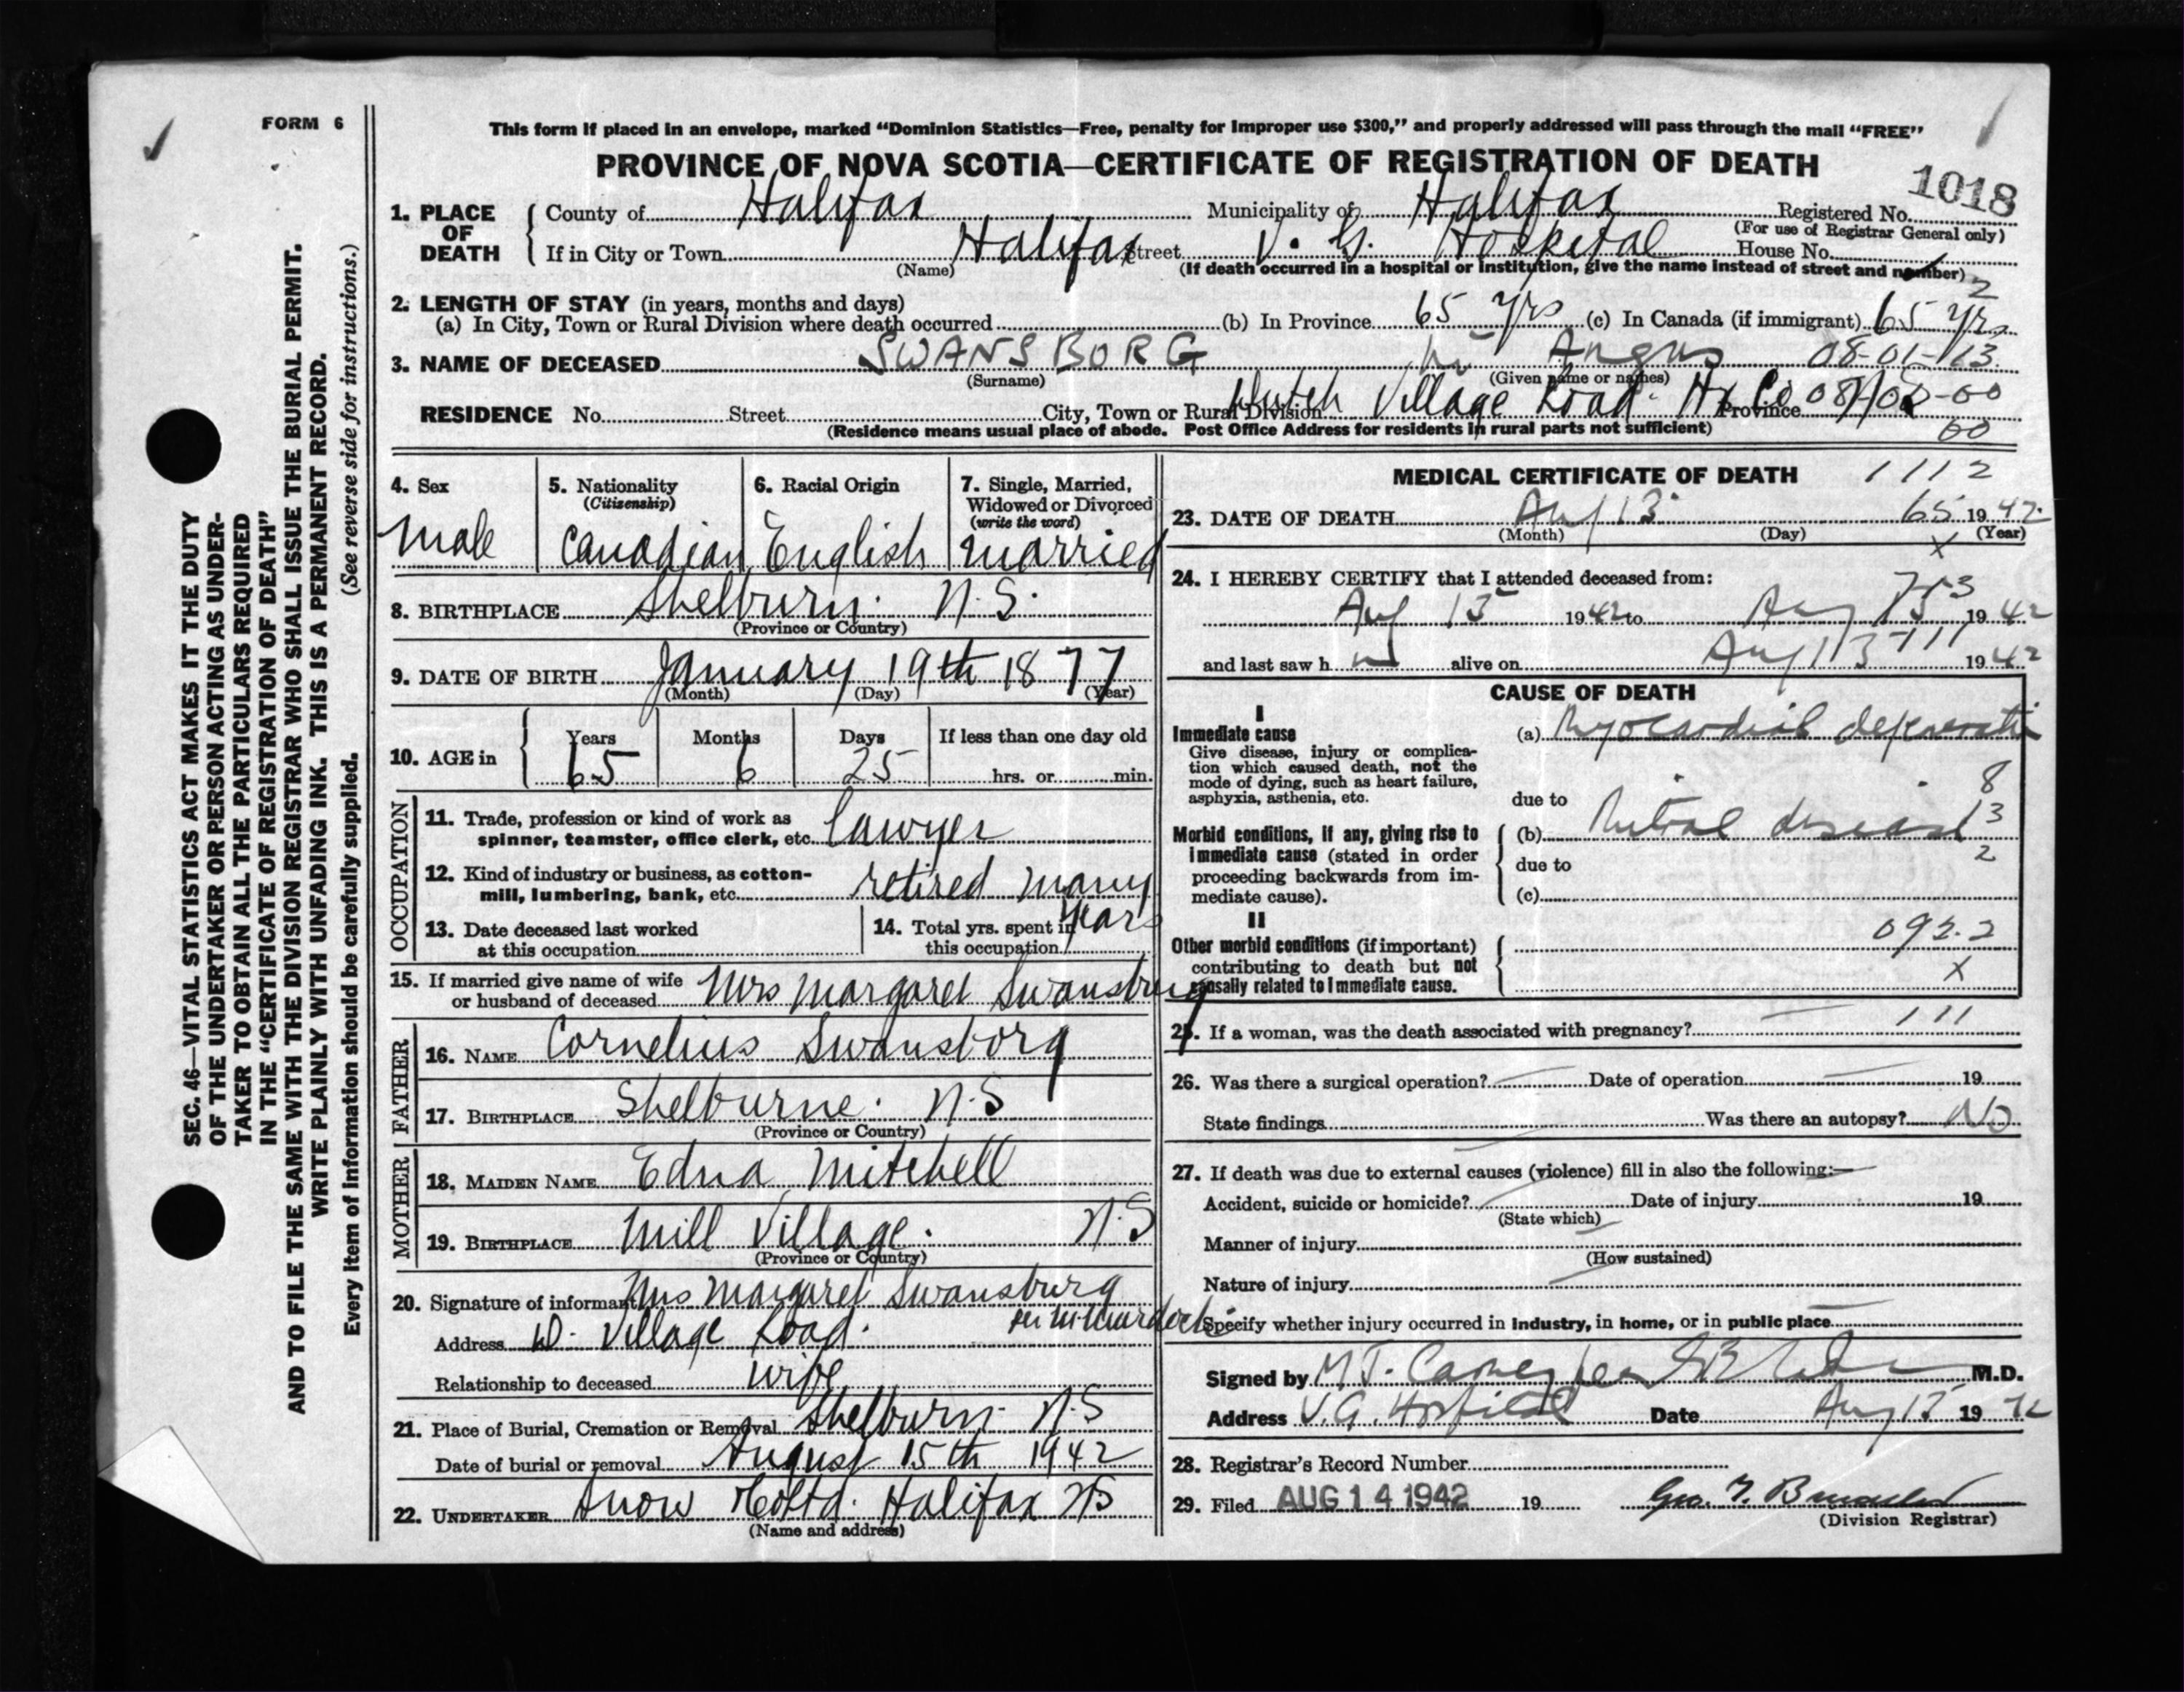 FORM 6
This form if placed in an envelope, marked “Dominion Statistics—Free, penalty for improper use $300,” and properly addressed will pass through the mail “FREE”
PROVINCE OF NOVA SCOTIA—CERTIFICATE OF REGISTRATION OF DEATH
1018
1. PLACE OF DEATH County of Halifax Municipality of Halifax Registered No.
(For use of Registrar General only)
If in City or Town Halifax Street V. G. Hospital House No.
(Name) (If death occurred in a hospital or institution, give the name instead of street and number)
2
2. LENGTH OF STAY (in years, months and days)
(a) In City, Town or Rural Division where death occurred (b) In Province 65 yrs (c) In Canada (if immigrant) 65 yrs
3. NAME OF DECEASED SWANSBORG Angus 08-01-13
(Surname) (Given name or names)
RESIDENCE No. Street City, Town or Rural Division Dutch Village Road. Hx Co Province 08-00
(Residence means usual place of abode. Post Office Address for residents in rural parts not sufficient)
00
4. Sex 5. Nationality 6. Racial Origin 7. Single, Married,
(Citizenship) Widowed or Divorced
(write the word)
Male Canadian English Married
8. BIRTHPLACE Shelburn. N.S.
(Province or Country)
9. DATE OF BIRTH January 19th 1877
(Month) (Day) (Year)
10. AGE in Years Months Days If less than one day old
65 6 25 hrs. or min.
OCCUPATION
11. Trade, profession or kind of work as
spinner, teamster, office clerk, etc. Lawyer
12. Kind of industry or business, as cotton-
mill, lumbering, bank, etc. retired many
years
13. Date deceased last worked 14. Total yrs. spent in
at this occupation this occupation
15. If married give name of wife
or husband of deceased Mrs Margaret Swansburg
FATHER
16. NAME Cornelius Swansborg
17. BIRTHPLACE Shelburne. N.S
(Province or Country)
MOTHER
18. MAIDEN NAME Edna Mitchell
19. BIRTHPLACE Mill Village. N.S
(Province or Country)
20. Signature of informant Mrs Margaret Swansburg
Address D. Village Road.
Relationship to deceased wife
21. Place of Burial, Cremation or Removal Shelburn N.S
Date of burial or removal August 15th 1942
22. UNDERTAKER Snow & Co Ltd. Halifax NS
(Name and address)
MEDICAL CERTIFICATE OF DEATH 1112
23. DATE OF DEATH Aug 13 65 1942
(Month) (Day) (Year)
X
24. I HEREBY CERTIFY that I attended deceased from:
Aug 13 1942 to Aug 13 1942
and last saw h alive on Aug 13 1942
111
CAUSE OF DEATH
I
Immediate cause (a) Myocardial
Give disease, injury or complica-
tion which caused death, not the
mode of dying, such as heart failure,
asphyxia, asthenia, etc. due to
8
Morbid conditions, if any, giving rise to (b) Mitral disease 13
immediate cause (stated in order due to 2
proceeding backwards from im-
mediate cause). (c)
II
Other morbid conditions (if important) 092.2
contributing to death but not X
causally related to immediate cause.
25. If a woman, was the death associated with pregnancy? — 111
26. Was there a surgical operation? Date of operation 19
State findings Was there an autopsy? No
27. If death was due to external causes (violence) fill in also the following:—
Accident, suicide or homicide? Date of injury 19
(State which)
Manner of injury
(How sustained)
Nature of injury
Specify whether injury occurred in industry, in home, or in public place
Signed by M.D.
Address V.G. Hospital Date Aug 13 1942
28. Registrar's Record Number
29. Filed AUG 14 1942 19
(Division Registrar)
SEC. 46—VITAL STATISTICS ACT MAKES IT THE DUTY
OF THE UNDERTAKER OR PERSON ACTING AS UNDER-
TAKER TO OBTAIN ALL THE PARTICULARS REQUIRED
IN THE “CERTIFICATE OF REGISTRATION OF DEATH”
AND TO FILE THE SAME WITH THE DIVISION REGISTRAR WHO SHALL ISSUE THE BURIAL PERMIT.
WRITE PLAINLY WITH UNFADING INK. THIS IS A PERMANENT RECORD.
Every item of information should be carefully supplied. (See reverse side for instructions.)